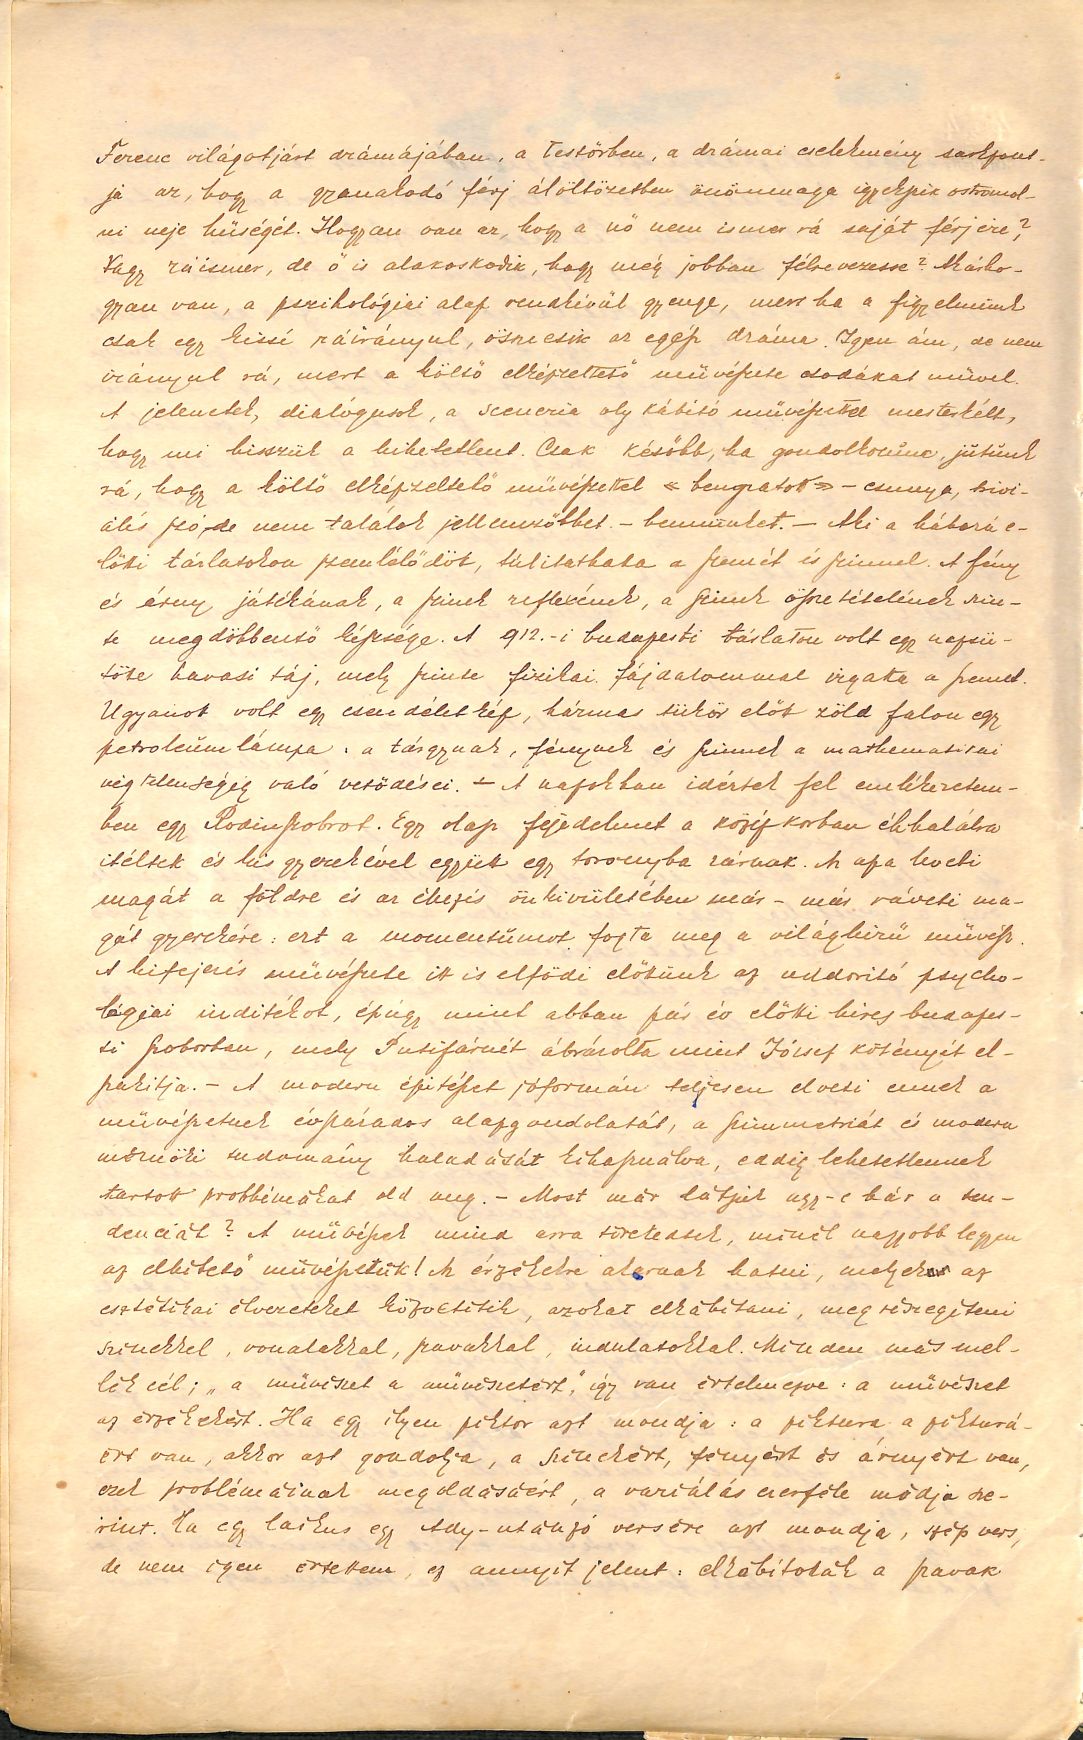 Ferenc világotjárt drámájában, a Testőrben, a drámai cselekmény sarkpont-
ja az, hogy a gyanakodó férj álöltözetben önönmaga igyekszik ostromol-
ni neje hűségét. Hogyan van az, hogy a nő nem ismer rá saját férjére?
Vagy ráismer, de ő is alakoskodik, hogy még jobban félrevezesse? Akárho-
gyan van, a pszihológiai alap rendkivül gyenge, mert ha a figyelmünk
csak egy kissé ráirányul, összecsik az egész dráma. Igen ám, de nem
irányul rá, mert a költő elképzeltető művészete csodákat művel.
A jelenetek, dialógusok, a sceneria oly kábitó művészettel mesterkélt,
hogy mi hisszük a hihetetlent. Csak később, ha gondolkozunk, jutunk
rá, hogy a költő elképzeltető művészettel « beugratott » – csunya, trivi-
ális szó, de nem találok jellemzőbbet. – bennünket. – Aki a háború e-
lőtti tárlatokon szemlélődött, túlitathatta a szemét is szinnel. A fény
és árny játékának, a szinek reflexének, a szinek összetételének szin-
te megdöbbentő képsége. A 912.-i budapesti tárlaton volt egy napsü-
tötte havasi táj, mely szinte fizikai fájdalommal izgatta a szemet.
Ugyanott volt egy csendéletkép, hármas tükör előtt zöld falon egy
petroleumlámpa : a tárgynak, fénynek és szinnek a mathematikai
végtelenségig való vetődései. – A napokban idéztek fel emlékezetem-
ben egy Rodinszobrot. Egy olasz fejedelmet a középkorban éhhalálra
itéltek és kis gyerekével együtt egy toronyba zárnak. Az apa leveti
magát a földre és az éhezés önkivületében már-már ráveti ma-
gát gyerekére : ezt a momentumot fogta meg a világhirű művész.
A kifejezés művészete itt is elfödi előttünk az undoritó psycho-
lógiai inditékot, épúgy mint abban pár év előtti hires budapes-
ti szoborban, mely Putifárnét ábrázolta mint József kötényét el-
szakitja. – A modern épitészet jóformán teljesen elveti ennek a
művészetnek évszázados alapgondolatát, a szimmetriát és modern
mérnöki tudomány haladását kihasználva, eddig lehetetlennek
tartott problémákat old meg. – Most már látjuk ugy-e bár a ten-
denciát? A művészek mind arra törekedtek, minél nagyobb legyen
az elhitető művészetük! Az érzékekre akarnak hatni, melyek az
esztétikai élvezeteket közvetitik, azokat elkábitani, megrészegiteni
szinekkel, vonalakkal, szavakkal, indulatokkal. Minden más mel-
lék cél; „a művészet a művészetért", igy van értelmezve : a művészet
az érzékekért. Ha egy ilyen piktor azt mondja : a piktura a pikturá-
ért van, akkor azt gondolja, a szinekért, fényért és árnyért van,
ezek problémáinak megoldásáért, a variálás ezerféle módja sze-
rint. Ha egy laikus egy Ady-utánzó versére azt mondja, szép vers,
de nem igen értettem, ez annyit jelent : elkábitották a szavak